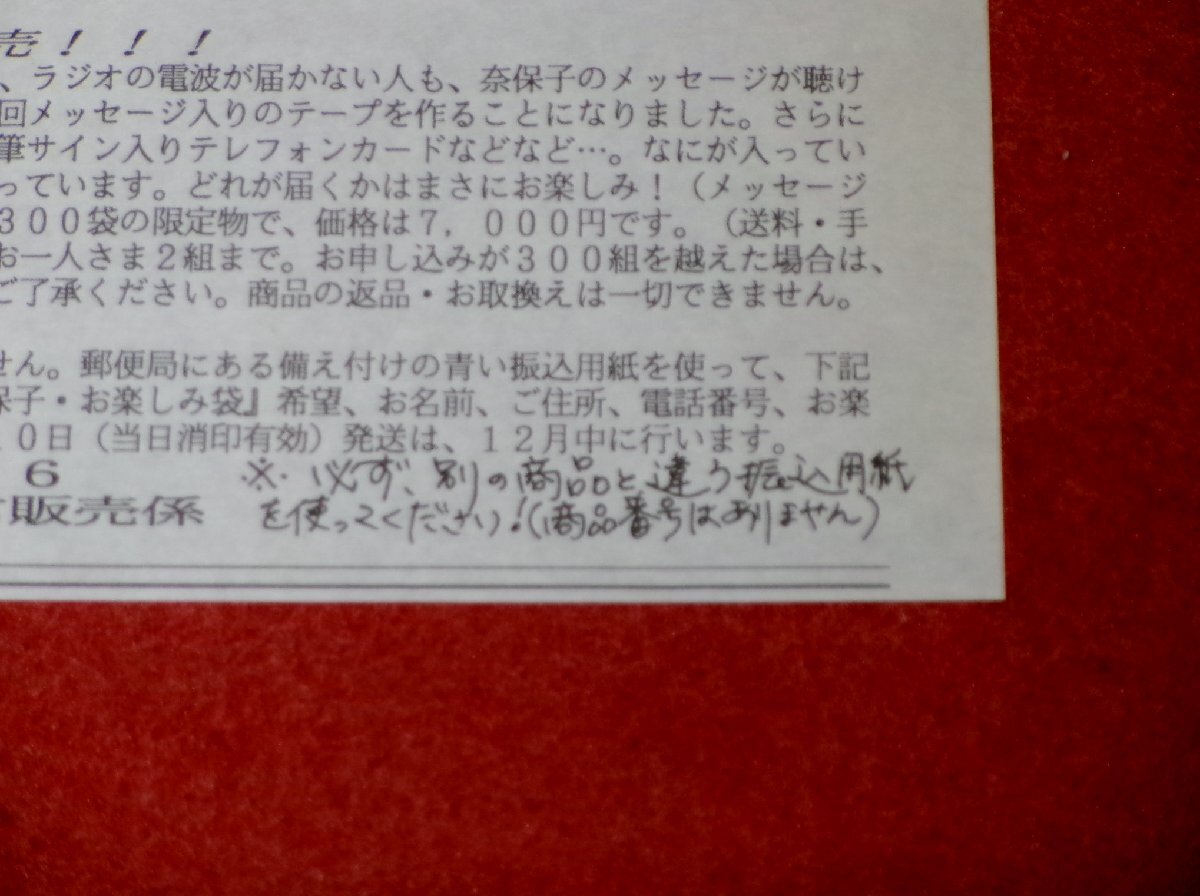 売！！！
、ラジオの電波が届かない人も、奈保子のメッセージが聴け
回メッセージ入りのテープを作ることになりました。さらに
筆サイン入りテレフォンカードなどなど…。なにが入ってい
っています。どれが届くかはまさにお楽しみ！（メッセージ
３００袋の限定物で、価格は７，０００円です。（送料・手
お一人さま２組まで。お申し込みが３００組を越えた場合は、
ご了承ください。商品の返品・お取換えは一切できません。
せん。郵便局にある備え付けの青い振込用紙を使って、下記
保子・お楽しみ袋』希望、お名前、ご住所、電話番号、お楽
１０日（当日消印有効）発送は、１２月中に行います。
６
販売係
※必ず、別の商品と違う振込用紙
を使ってください！（商品番号はありません）